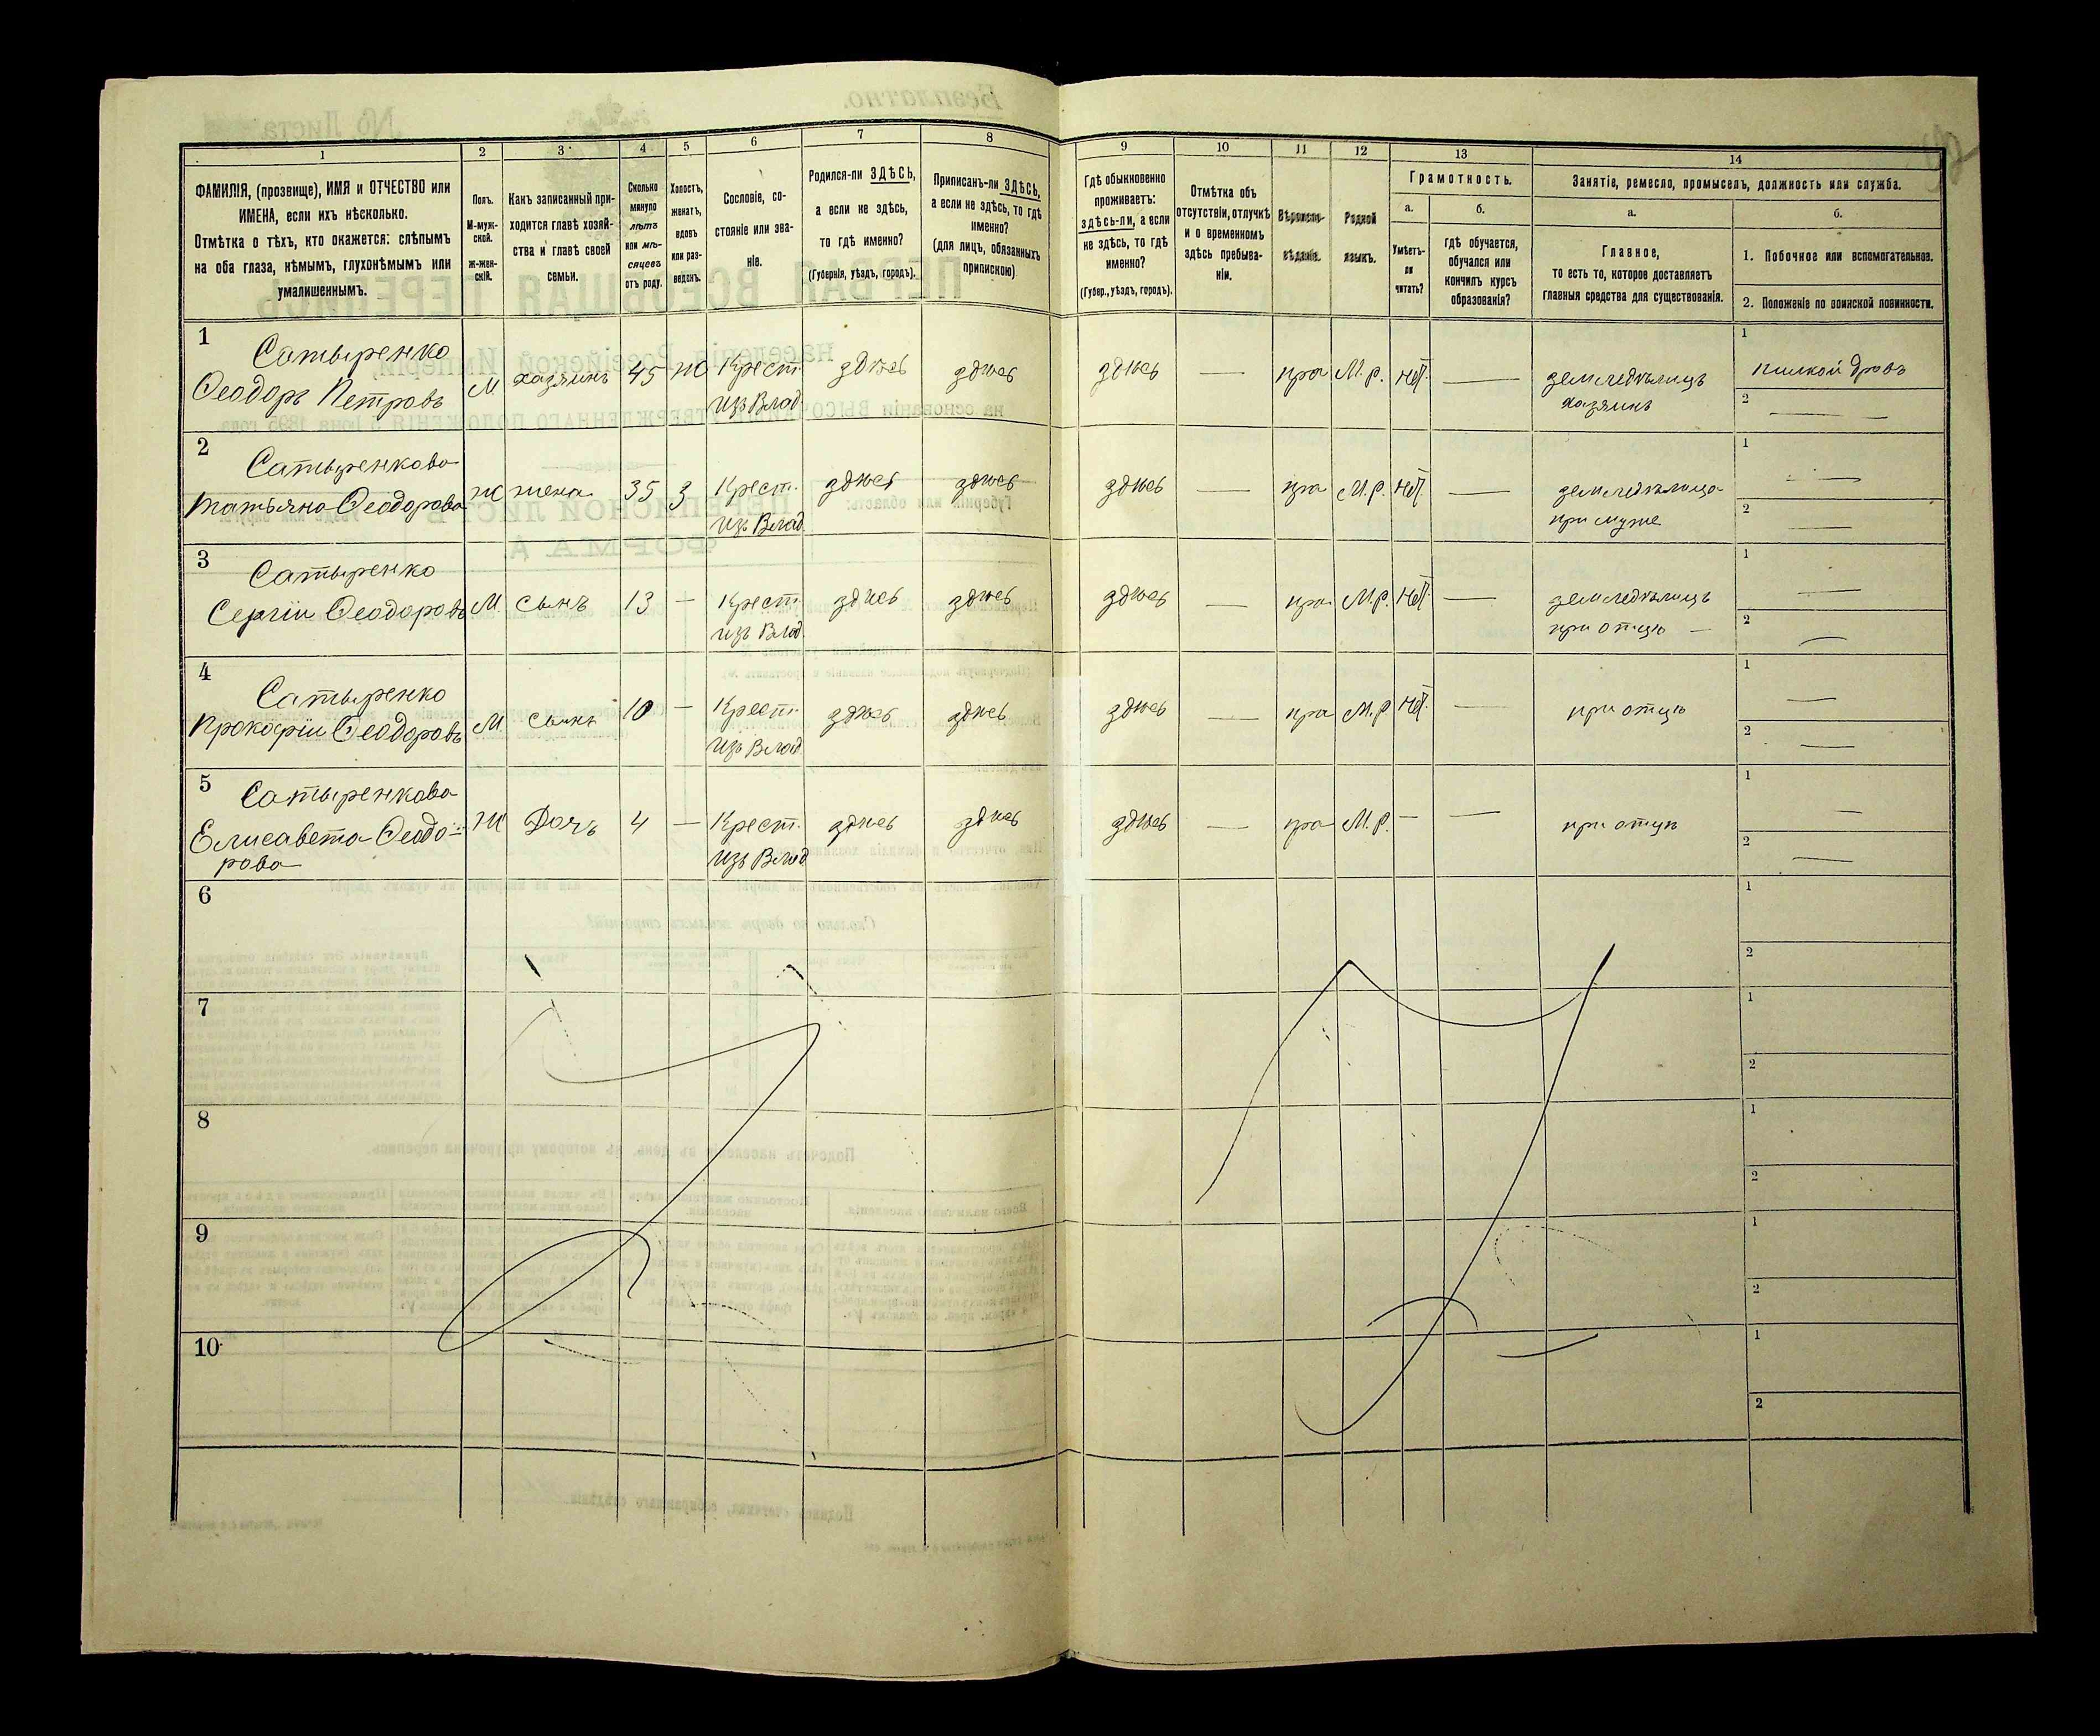 1 2 3 4 5 6 7 8 9 10 11 12 13 14
ФАМИЛІЯ, (прозвище), ИМЯ и ОТЧЕСТВО или
ИМЕНА, если ихъ нѣсколько.
Отмѣтка о тѣхъ, кто окажется: слѣпымъ
на оба глаза, нѣмымъ, глухонѣмымъ или
умалишеннымъ.
Полъ.
М-муж-
ской.
Ж-жен-
скій.
Какъ записанный при-
ходится главѣ хозяй-
ства и главѣ своей
семьи.
Сколько
минуло
лѣтъ
или мѣ-
сяцевъ
отъ роду.
Холостъ,
женатъ,
вдовъ
или раз-
веденъ.
Сословіе, со-
стояніе или зва-
ніе.
Родился-ли ЗДѢСЬ,
а если не здѣсь,
то гдѣ именно?
(Губернія, уѣздъ, городъ).
Приписанъ-ли ЗДѢСЬ,
а если не здѣсь, то гдѣ
именно?
(для лицъ, обязанныхъ
припискою)
Гдѣ обыкновенно
проживаетъ:
здѣсь-ли, а если
не здѣсь, то гдѣ
именно?
(Губер., уѣздъ, городъ).
Отмѣтка объ
отсутствіи, отлучкѣ
и о временномъ
здѣсь пребыва-
ніи.
Вѣроиспо-
вѣданіе.
Родной
языкъ.
Грамотность.
а.
Умѣетъ-
ли
читать?
б.
гдѣ обучается,
обучался или
кончилъ курсъ
образованія?
Занятіе, ремесло, промыселъ, должность или служба.
а.
Главное,
то есть то, которое доставляетъ
главныя средства для существованія.
б.
1. Побочное или вспомогательное.
2. Положеніе по воинской повинности.
1 Сатыренко
Ѳеодоръ Петровъ М. хазяинъ 45 Ж Крест. здѣсь здѣсь здѣсь — пра М.р. нѣт. — земледѣлицъ 1 пилкой дровъ
изъ Влад. хазяинъ 2 —
2 Сатыренкова
Татьяна Ѳеодорова Ж жена 35 З Крест. здѣсь здѣсь здѣсь — пра М.р. нѣт. — земледѣлица 1 —
изъ Влад. при мужѣ 2 —
3 Сатыренко
Сергіи Ѳеодоровъ М. сынъ 13 — Крест. здѣсь здѣсь здѣсь — пра М.р. нѣт. — земледѣлицъ 1 —
изъ Влад. при отцѣ — 2 —
4 Сатыренко
Прокофіи Ѳеодоровъ М. сынъ 10 — Крест. здѣсь здѣсь здѣсь — пра М.р. нѣт. — при отцѣ 1 —
изъ Влад. 2 —
5 Сатыренкова
Елисавета Ѳеодо- Ж Дочь 4 — Крест. здѣсь здѣсь здѣсь — пра М.р. — — при отцѣ 1 —
рова изъ Влад 2 —
6 1
2
7 1
2
8 1
2
9 1
2
10 1
2